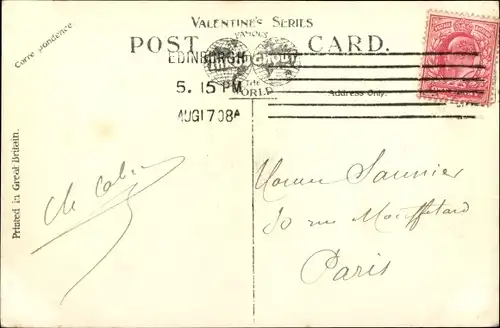 VALENTINE'S SERIES
FAMOUS
THROUGHOUT
THE
WORLD
POST CARD.
EDINBURGH
5. 15 PM
AUG 17 08A
Correspondence.
Address Only.
Printed in Great Britain.
Saunier
rue Mouffetard
Paris